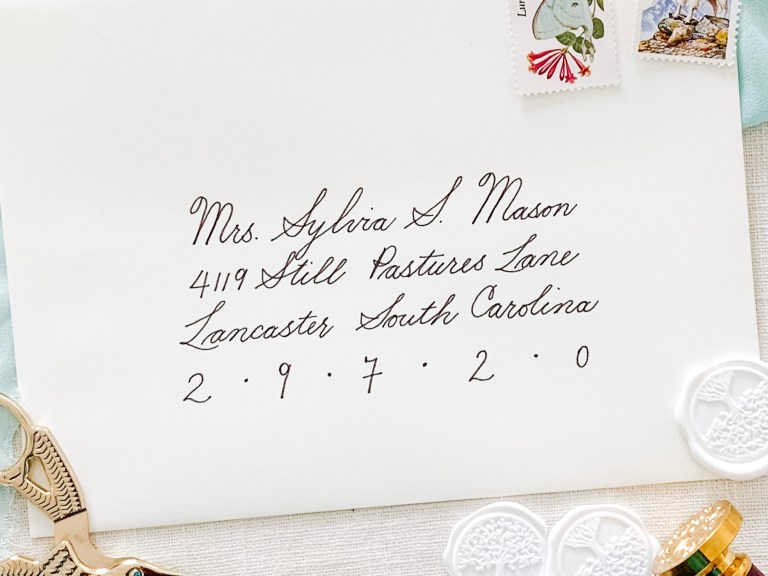 Mrs. Sylvia S. Mason
4119 Still Pastures Lane
Lancaster South Carolina
2 · 9 · 7 · 2 · 0